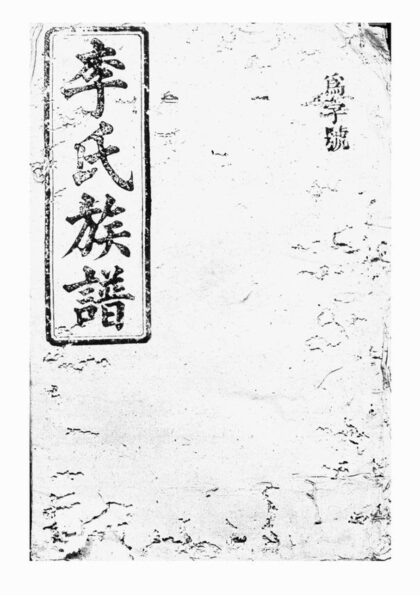 為字號
李氏族譜